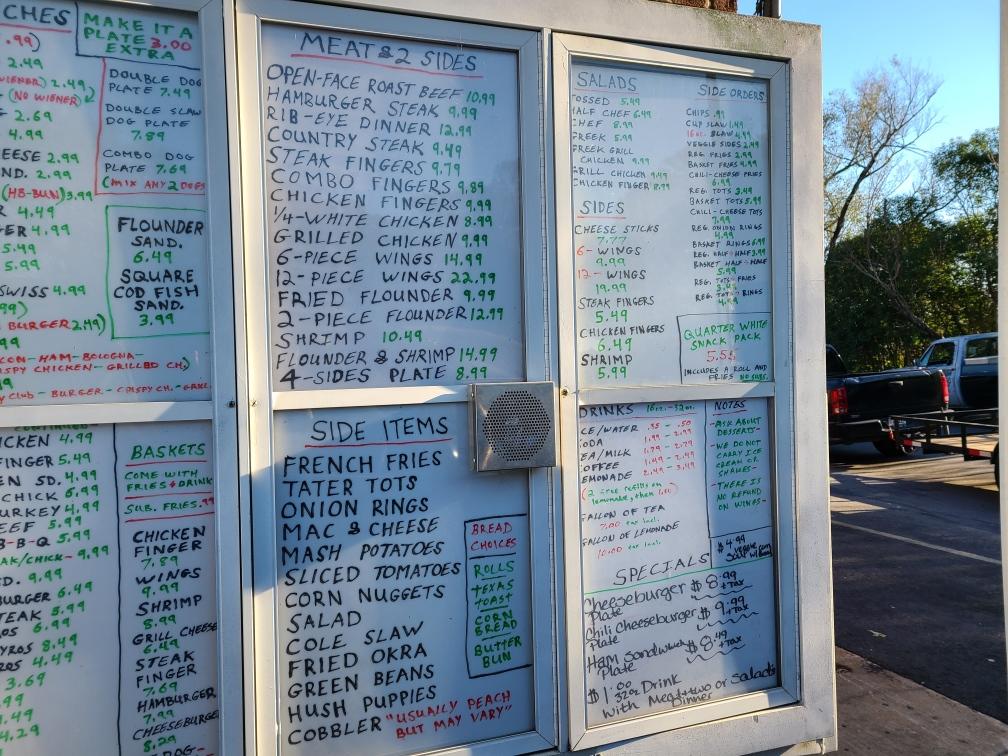 CHES
MAKE IT A
PLATE 3.00
EXTRA
.99)
2.49
WIENER) 2.49
(NO WIENER)
2.69
4.99
EESE 2.99
ND. 2.99
(HB-BUN) 3.99
R 4.49
GER 4.99
5.49
5.99
SWISS 4.99
99)
BURGER 2.49)
CON-HAM-BOLOGNA-
ISPY CHICKEN-GRILLED CH.)
DOUBLE DOG
PLATE 7.49
DOUBLE SLAW
DOG PLATE
7.89
COMBO DOG
PLATE 7.69
(MIX ANY 2 DOGS
FLOUNDER
SAND.
6.49
SQUARE
COD FISH
SAND.
3.99
ICKEN 4.99
FINGER 5.49
EN SD. 4.99
CHICK 6.99
URKEY 4.99
EEF 5.99
B-B-Q 5.99
AK/CHICK- 9.99
D. 9.99
BURGER 6.49
TEAK 5.99
OS 6.99
YROS 8.49
ROS 4.49
3.69
4.49
4.29
BASKETS
COME WITH
FRIES & DRINK
SUB. FRIES .99
CHICKEN
FINGER
7.89
WINGS
9.99
SHRIMP
8.99
GRILL CHEESE
6.49
STEAK
FINGER
7.69
HAMBURGER
7.99
CHEESEBURGE
8.29
MEAT & 2 SIDES
OPEN-FACE ROAST BEEF 10.99
HAMBURGER STEAK 9.99
RIB-EYE DINNER 12.99
COUNTRY STEAK 9.49
STEAK FINGERS 9.79
COMBO FINGERS 9.89
CHICKEN FINGERS 9.99
1/4-WHITE CHICKEN 8.99
GRILLED CHICKEN 9.99
6-PIECE WINGS 14.99
12-PIECE WINGS 22.99
FRIED FLOUNDER 9.99
2-PIECE FLOUNDER 12.99
SHRIMP 10.49
FLOUNDER & SHRIMP 14.99
4-SIDES PLATE 8.99
SIDE ITEMS
FRENCH FRIES
TATER TOTS
ONION RINGS
MAC & CHEESE
MASH POTATOES
SLICED TOMATOES
CORN NUGGETS
SALAD
COLE SLAW
FRIED OKRA
GREEN BEANS
HUSH PUPPIES
COBBLER "USUALLY PEACH
BUT MAY VARY"
BREAD
CHOICES
ROLLS
TEXAS
TOAST
CORN
BREAD
BUTTER
BUN
SALADS
TOSSED 5.49
HALF CHEF 6.49
CHEF 8.99
GREEK 5.99
GREEK GRILL
CHICKEN 9.99
GRILL CHICKEN 9.49
CHICKEN FINGER 8.99
SIDES
CHEESE STICKS
7.77
6- WINGS
9.99
12- WINGS
19.99
STEAK FINGERS
5.49
CHICKEN FINGERS
6.49
SHRIMP
5.99
SIDE ORDERS
CHIPS .99
CUP SLAW 1.49
16oz. SLAW 4.99
VEGGIE SIDES 2.49
REG. FRIES 2.99
BASKET FRIES 4.99
CHILI-CHEESE FRIES
6.99
REG. TOTS 3.49
BASKET TOTS 5.99
CHILI-CHEESE TOTS
7.99
REG. ONION RINGS
4.99
BASKET RINGS 6.99
REG. HALF & HALF 3.99
BASKET HALF & HALF
5.99
REG. TOTS- FRIES
REG. TOTS- RINGS
QUARTER WHITE
SNACK PACK
5.55
INCLUDES A ROLL AND
FRIES NO SUBS.
DRINKS 16oz.-32oz.
ICE/WATER .35 - .50
SODA
TEA/MILK
COFFEE
LEMONADE
(2 free refills on
lemonade, then 1.00)
GALLON OF TEA
7.00 tax incl.
GALLON OF LEMONADE
10.00 tax incl.
NOTES
-ASK ABOUT
DESSERTS-
-WE DO NOT
CARRY ICE
CREAM OR
SHAKES-
-THERE IS
NO REFUND
ON WINGS-
SPECIALS
$4.99
Veggie
Soup w/ Corn
Cheeseburger $8.99
Plate +Tax
Chili Cheeseburger $9.99
Plate +Tax
Ham Sandwich $8.49
Plate +Tax
$1.00
32oz Drink
with Meat & two or Salads
Dinner